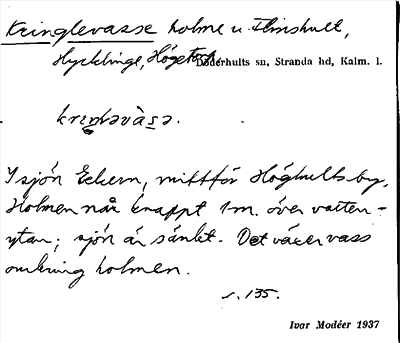 Kringlevasse holme u. Flinshult,
Hycklinge, Högetorp, Döderhults sn, Stranda hd, Kalm. l.
I sjön Eckern, mittför Höghults by.
Holmen når knappt 1 m. över vatten-
ytan; sjön är sänkt. Det växer vass
omkring holmen.
s. 135.
Ivar Modéer 1937